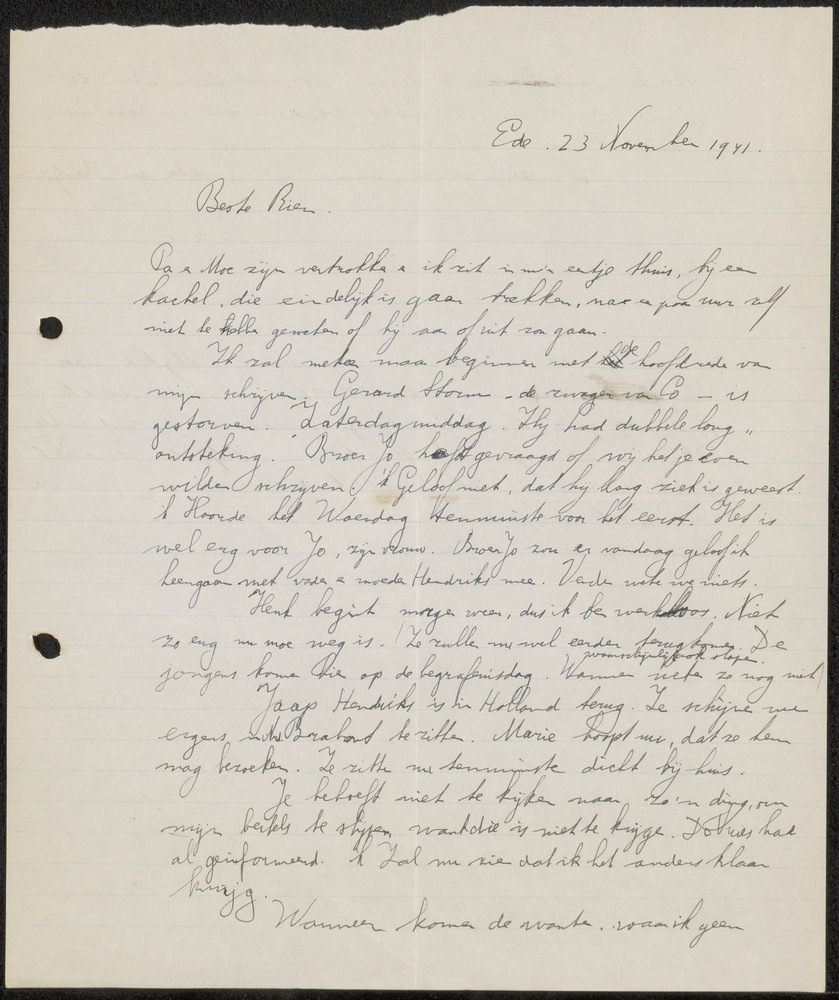 Ede. 23 November 1941.
Beste Rien.
Pa en Moe zijn vertrokken en ik zit in m'n eentje thuis, bij een
kachel, die eindelijk is gaan trekken, na een paar uur zelf
niet te hebben geweten of hij aan of uit zou gaan.
Ik zal meteen maar beginnen met de hoofdrede van
mijn schrijven. Gerard Storm - de zwager van Co - is
gestorven. Zaterdagmiddag. Hij had dubbele long„
ontsteking. Broer Jo heeft gevraagd of wij het je even
wilden schrijven. 'k Geloof niet, dat hij lang ziek is geweest.
'k Hoorde het Woensdag tenminste voor het eerst. Het is
wel erg voor Jo, zijn vrouw. Broer Jo zou er vandaag geloof ik
heengaan met vader en moeder Hendriks mee. Verder weten we niets.
Henk begint morgen weer, dus ik ben werkloos. Niet
zo erg nu moe weg is. Ze zullen nu wel eerder terugkomen. De
waarschijnlijk ook slapen.
jongens komen hier op de begrafenisdag. Wanneer weten ze nog niet
Jaap Hendriks is in Holland terug. Ze schijnen nu
ergens in N. Brabant te zitten. Marie hoopt nu, dat ze hem
mag bezoeken. Ze zitten nu tenminste dicht bij huis.
Je behoeft niet te kijken naar zo'n ding, om
mijn beitels te slijpen, want die is niet te krijgen. Douwes had
al geïnformeerd. 'k Zal nu zien dat ik het anders klaar
krijg.
Wanneer komen de wanten. waar ik geen